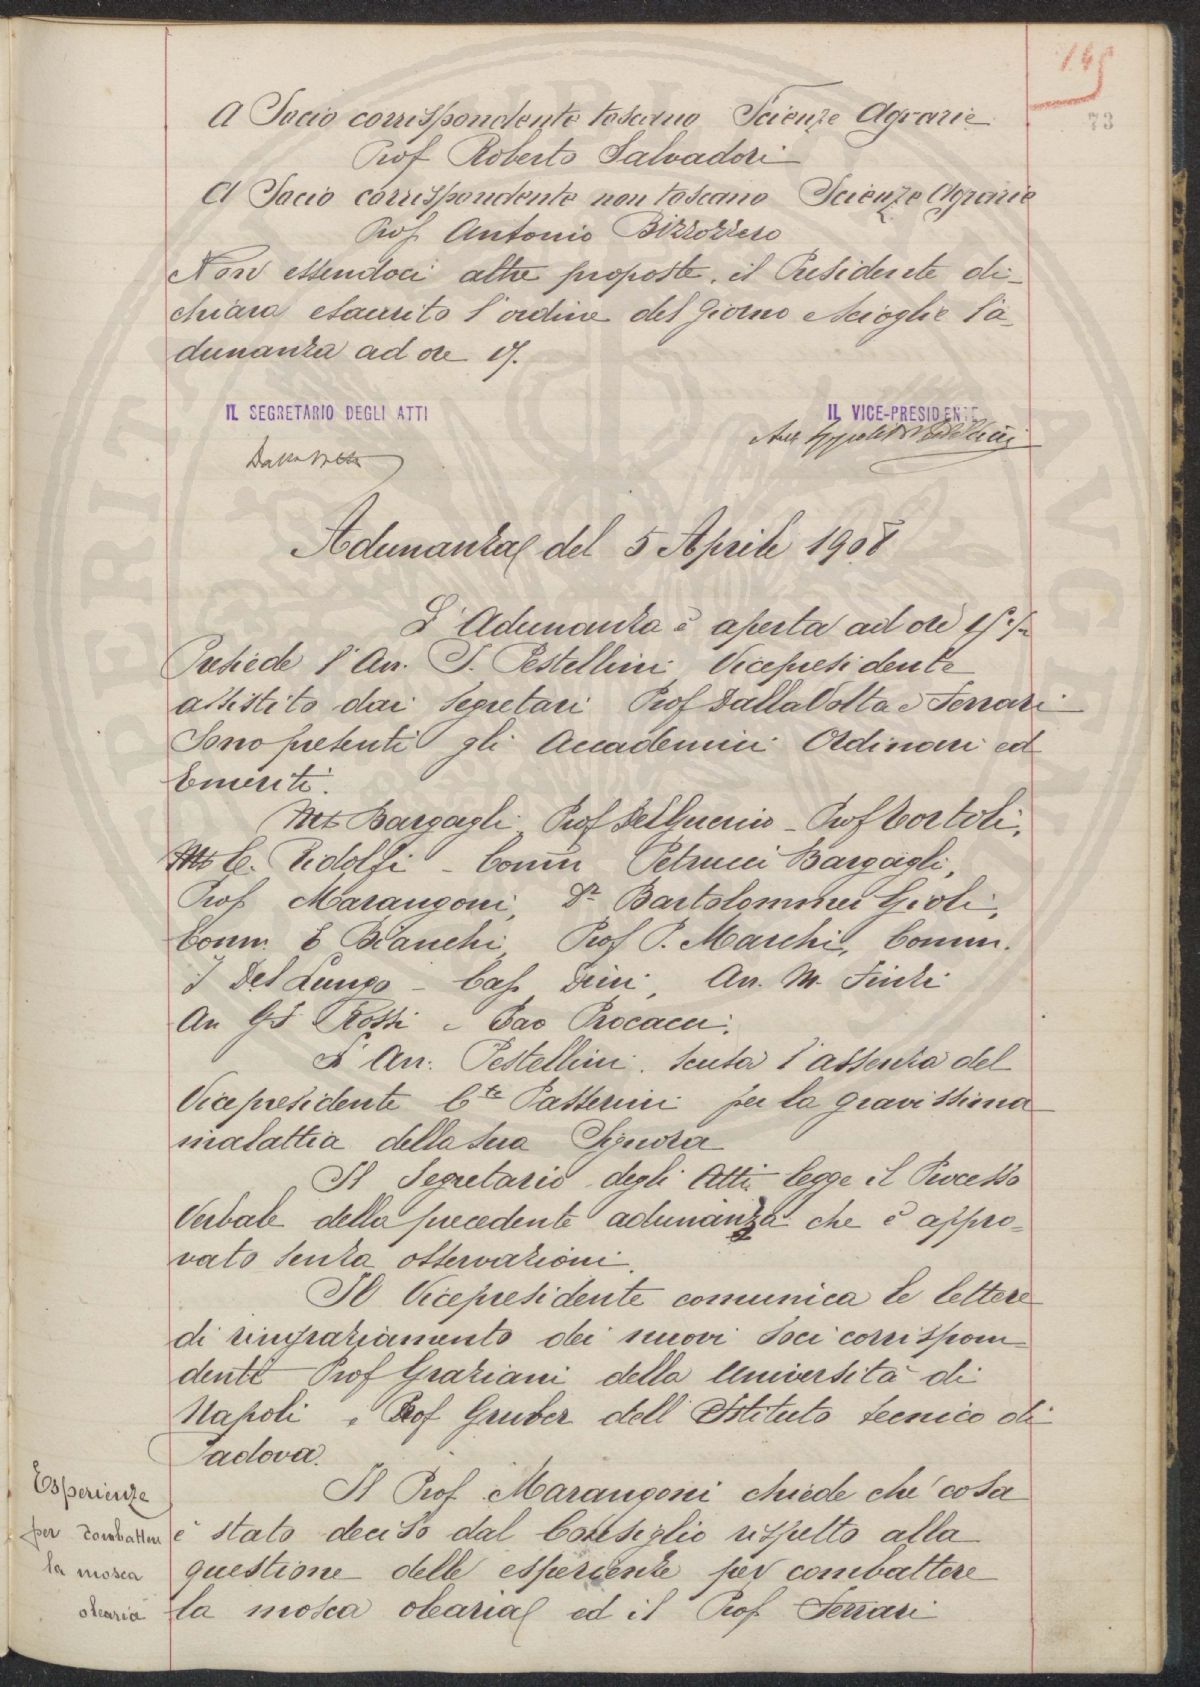 145
73
A Socio corrispondente toscano Scienze Agrarie
Prof Roberto Salvadori
A Socio corrispondente non toscano Scienze Agrarie
Prof Antonio Bizzozzero
Non essendoci altre proposte, il Presidente di-
chiara esaurito l'ordine del giorno e scioglie l'a-
dunanza ad ore 17.
IL SEGRETARIO DEGLI ATTI
IL VICE-PRESIDENTE
Dalla Volta
Avv. Ippolito Pestellini
Adunanza del 5 Aprile 1908
L'Adunanza è aperta ad ore
Presiede l'Avv. I. Pestellini Vicepresidente
assistito dai Segretari Prof Dalla Volta e Ferrari
Sono presenti gli Accademici Ordinari ed
Emeriti.
Bargagli, Prof Del Guercio - Prof Bortoli,
C. Ridolfi - Comm Petrucci Bargagli,
Prof Marangoni, Dr Bartolommei Gioli,
Comm. E Bianchi, Prof P. Marchi, Comm.
I Del Lungo - Cap Drini, Avv. M. Finzi
Avv GF Rossi e Procacci.
L'Avv. Pestellini scusa l'assenza del
Vicepresidente Cte Passerini per la gravissima
malattia della sua Signora
Il Segretario degli Atti legge il Processo
Verbale della precedente adunanza che è appro-
vato senza osservazioni.
Il Vicepresidente comunica le lettere
di ringraziamento dei nuovi Soci corrispon-
denti Prof Graziani della Università di
Napoli e Prof Gruber dell'Istituto tecnico di
Padova.
Il Prof Marangoni chiede che cosa
è stato deciso dal Consiglio rispetto alla
questione delle esperienze per combattere
la mosca olearia ed il Prof Ferrari
Esperienze
per combattere
la mosca
olearia